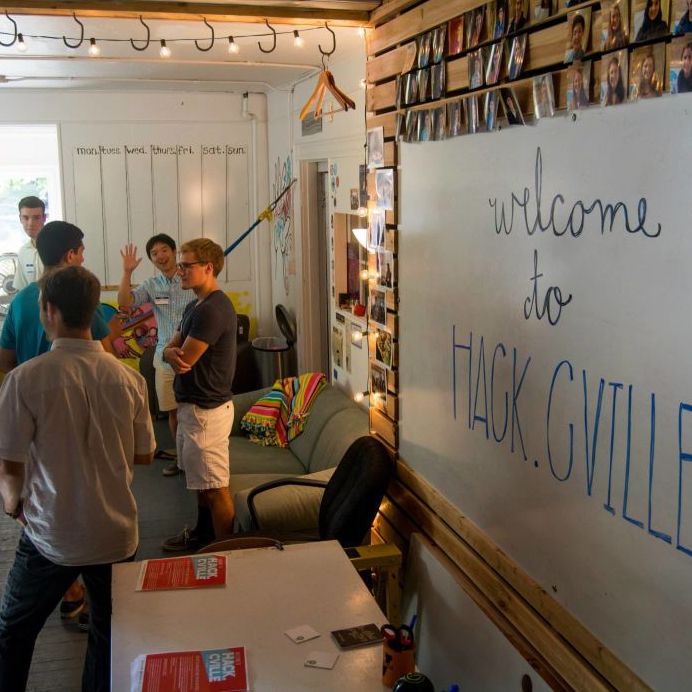 mon. tues. wed. thurs. fri. sat. sun.
welcome
to
HACK.CVILLE
HACK
CVILLE
HACK
CVILLE